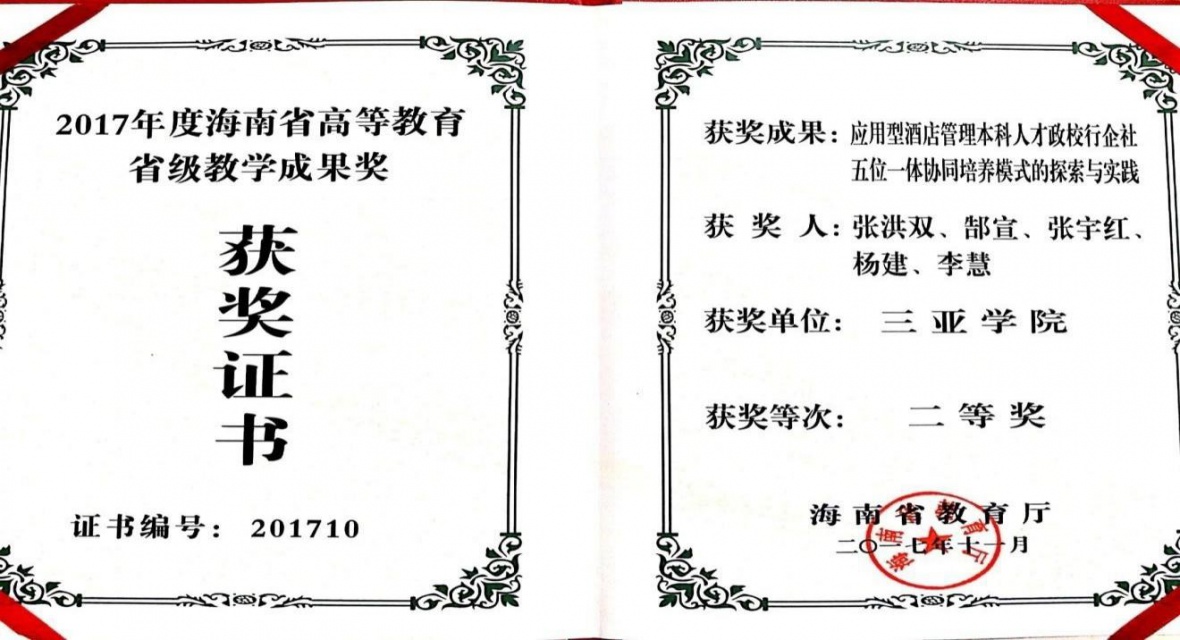 2017年度海南省高等教育
省级教学成果奖
获奖证书
证书编号：201710
获奖成果：应用型酒店管理本科人才政校行企社
五位一体协同培养模式的探索与实践
获奖人：张洪双、郜宣、张宇红、
杨建、李慧
获奖单位：三亚学院
获奖等次：二等奖
海南省教育厅
二〇一七年十一月
海南省教育厅